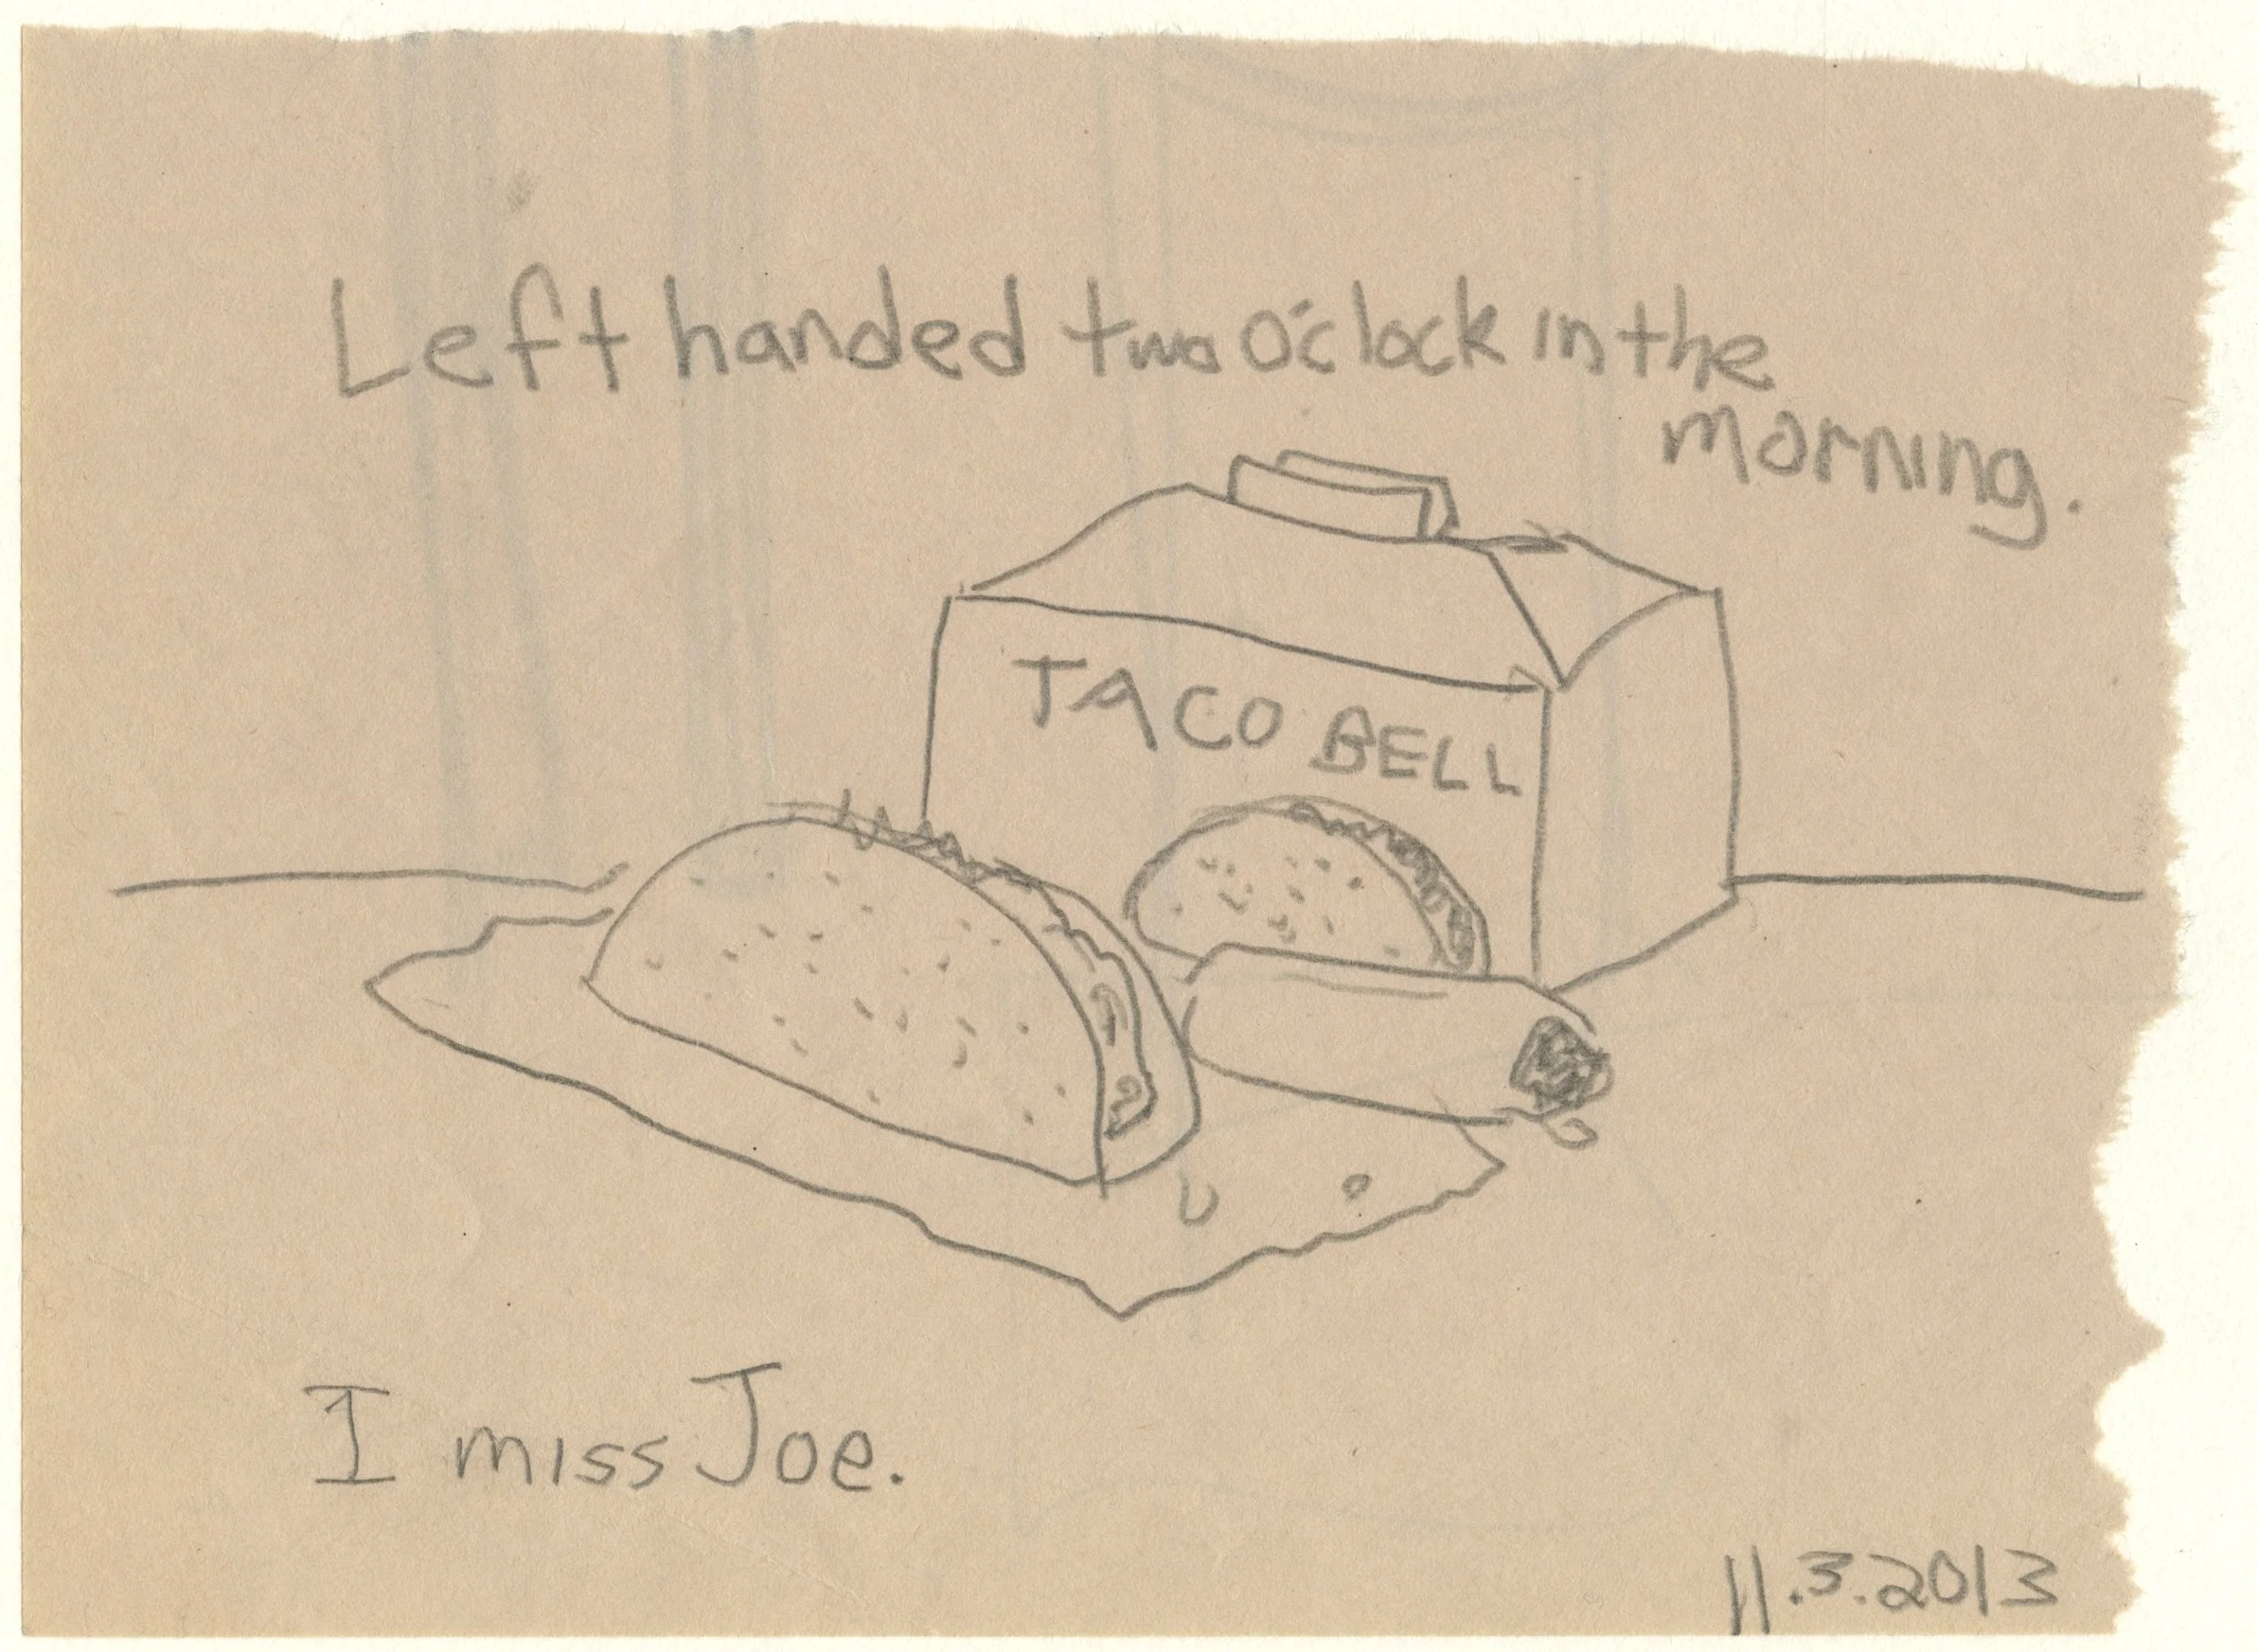 Left handed two O'clock in the
morning.
TACO BELL
I miss Joe.
11.3.2013